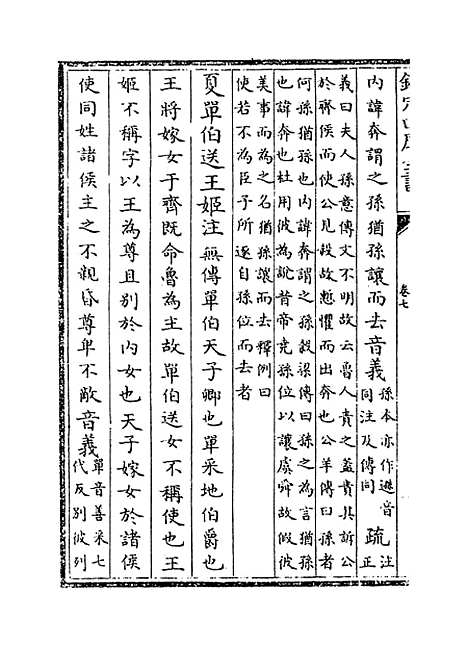 欽定四庫全書
卷七
內諱奔謂之孫猶孫讓而去音義孫本亦作遜音注
同注及傳同疏正
義曰夫人孫意傳文不明故云魯人責之蓋責其訴公
於齊侯而使公見殺故慙懼而出奔也公羊傳曰孫者
何孫猶孫也內諱奔謂之孫穀梁傳曰孫之為言猶孫
也諱奔也杜用彼為說昔帝堯孫位以讓虞舜故假彼
美事而為之名猶孫讓而去釋例曰
使若不為臣子所逐自孫位而去者
夏單伯送王姬注無傳單伯天子卿也單采地伯爵也
王將嫁女于齊既命魯為主故單伯送女不稱使也王
姬不稱字以王為尊且別於內女也天子嫁女於諸侯
使同姓諸侯主之不親昏尊卑不敵音義單音善采七
代反別彼列